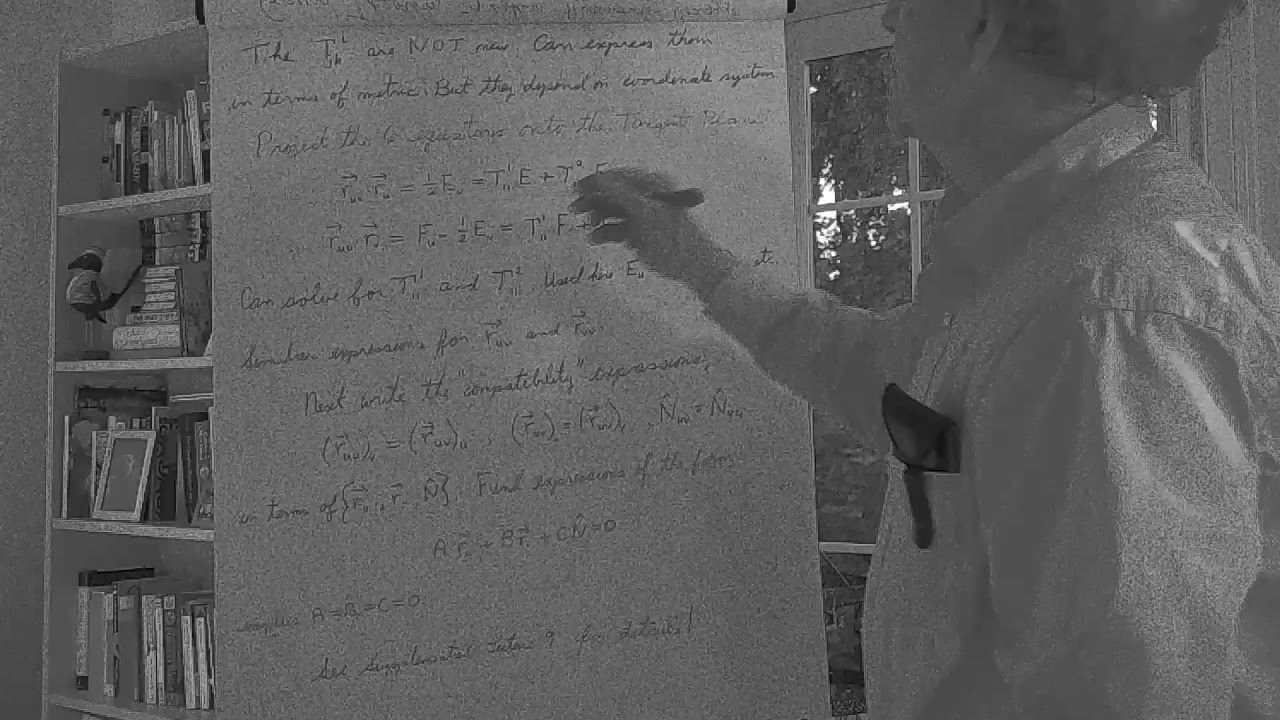 The Γⁱⱼₖ are NOT new. Can express them
in terms of metric. But they depend on coordinate system
Project the 6 equations onto the Tangent Plane
r⃗ᵤᵤ · r⃗ᵤ = ½ Eᵤ = Γ₁₁¹ E + Γ₁₁² F
r⃗ᵤᵤ · r⃗ᵥ = Fᵤ - ½ Eᵥ = Γ₁₁¹ F +
Can solve for Γ₁₁¹ and Γ₁₁². Used here Eᵤ etc.
Similar expressions for r⃗ᵤᵥ and r⃗ᵥᵥ.
Next write the "compatibility" expressions,
(r⃗ᵤᵤ)ᵥ = (r⃗ᵤᵥ)ᵤ, (r⃗ᵥᵥ)ᵤ = (r⃗ᵤᵥ)ᵥ, N̂ᵤᵥ = N̂ᵥᵤ
in terms of {r⃗ᵤ, r⃗ᵥ, N̂}. Find expressions of the form
A r⃗ᵤ + B r⃗ᵥ + C N̂ = 0
implies A = B = C = 0
See Supplemental Lecture 9 for details!